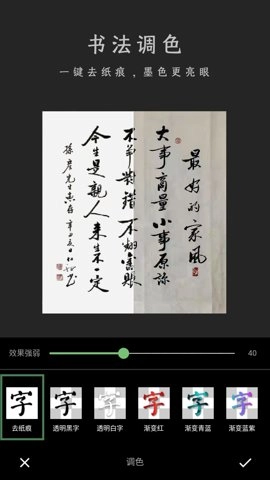 书法调色
一键去纸痕，墨色更亮眼
最好的家風
大事商量小事原諒
不爭對錯不翻舊賬
今生是親人來生不一定
效果強弱 40
字 字 字 字 字 字
去纸痕 透明黑字 透明白字 渐变红 渐变青蓝 渐变蓝紫
调色